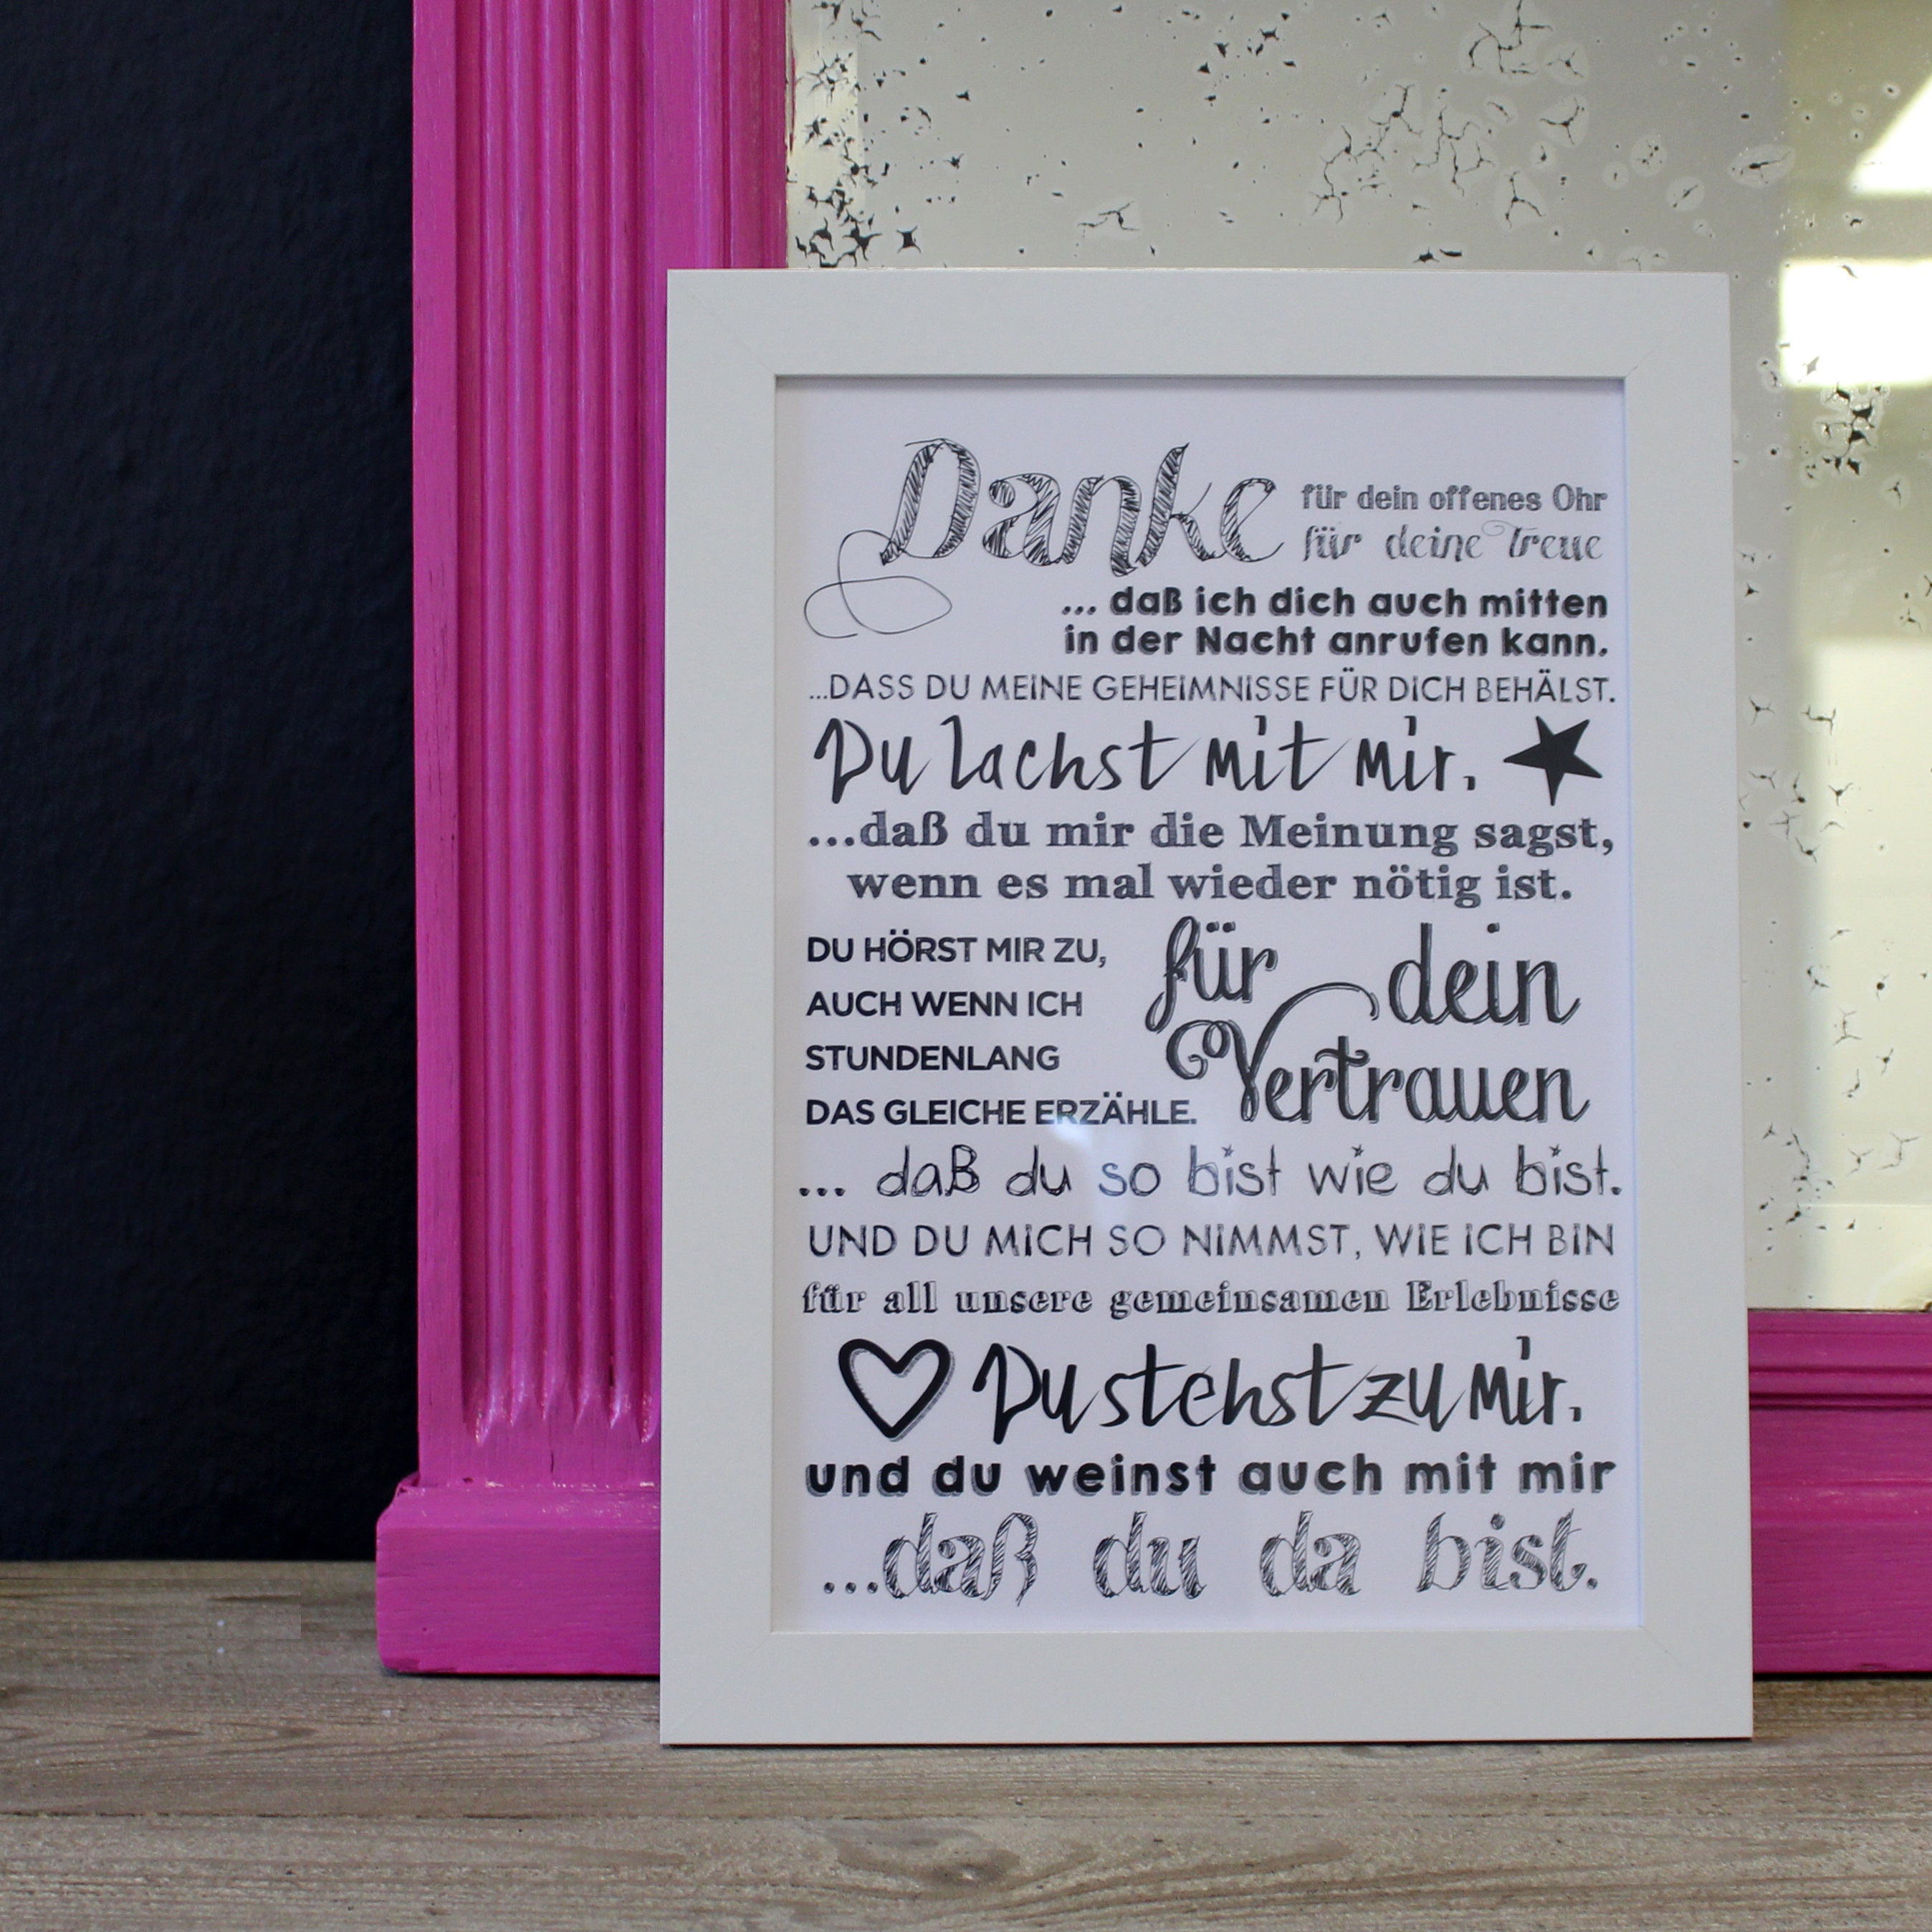 Danke für dein offenes Ohr
für deine Treue
... daß ich dich auch mitten
in der Nacht anrufen kann.
...DASS DU MEINE GEHEIMNISSE FÜR DICH BEHÄLST.
Du lachst mit mir.
...daß du mir die Meinung sagst,
wenn es mal wieder nötig ist.
DU HÖRST MIR ZU,
AUCH WENN ICH
STUNDENLANG
DAS GLEICHE ERZÄHLE.
für dein
Vertrauen
... daß du so bist wie du bist.
UND DU MICH SO NIMMST, WIE ICH BIN
für all unsere gemeinsamen Erlebnisse
Du stehst zu mir.
und du weinst auch mit mir
...daß du da bist.